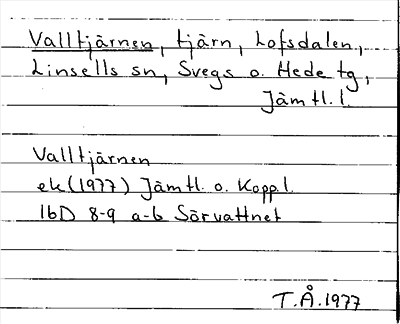 Valltjärnen, tjärn, Lofsdalen,
Linsells sn, Svegs o. Hede tg,
Jämtl. l.
Valltjärnen
ek (1977) Jämtl. o. Kopp.l.
16D 8-9 a-b Sörvattnet
T.Å. 1977